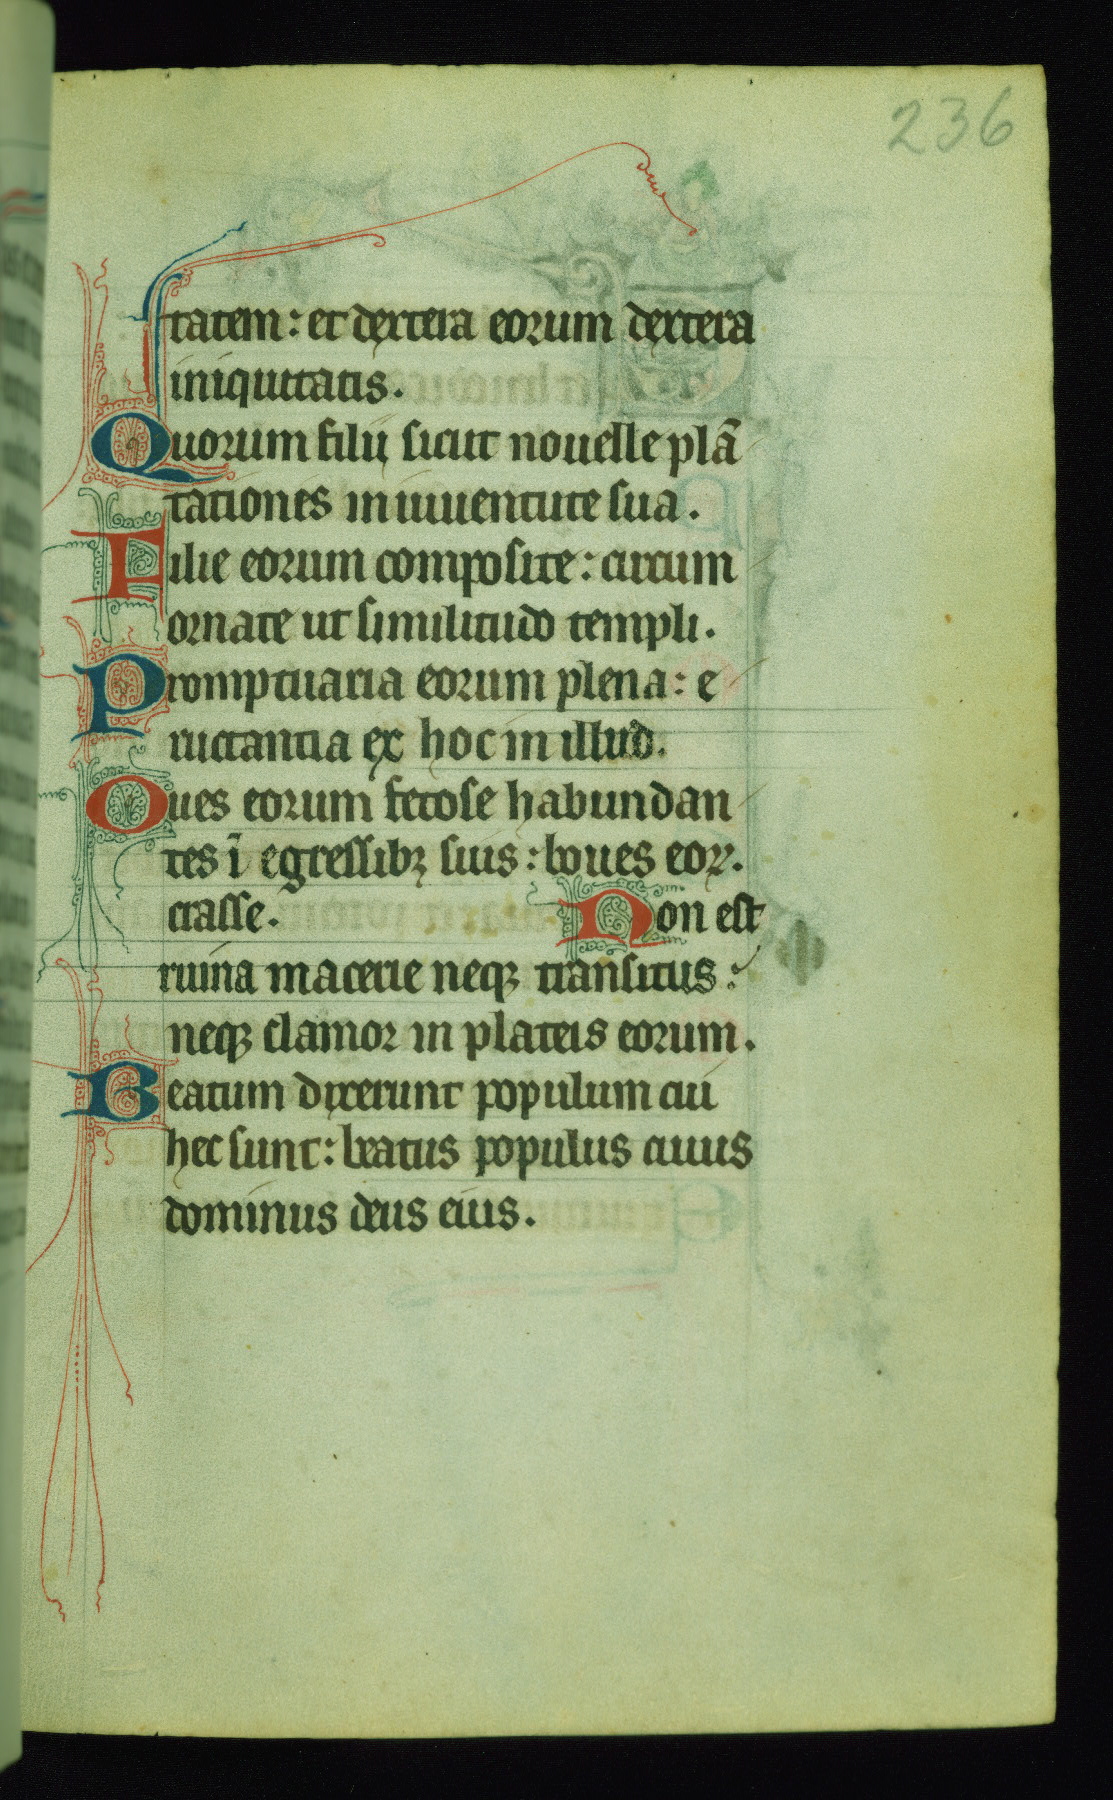 236
tatem: et dextera eorum dextera
iniquitatis.
Quorum filii sicut nouelle plā
tationes in iuuentute sua.
Filie eorum composite: circum
ornate ut similitudo templi.
Promptuaria eorum plena: e
ructantia ex hoc in illud.
Oues eorum fetose habundan
tes ī egressibꝫ suis: boues eoꝝ.
crasse. Non est
ruina macerie neqꝫ transitus:
neqꝫ clamor in plateis eorum.
Beatum dixerunt populum cui
hec sunt: beatus populus cuius
dominus deus eius.